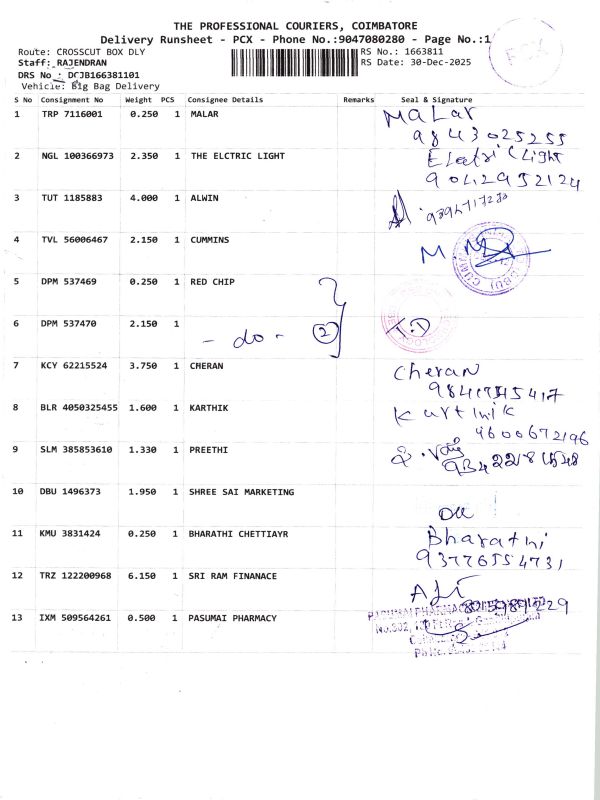 THE PROFESSIONAL COURIERS, COIMBATORE
Delivery Runsheet - PCX - Phone No.:9047080280 - Page No.:1
Route: CROSSCUT BOX DLY
RS No.: 1663811
Staff: RAJENDRAN
RS Date: 30-Dec-2025
DRS No : DCJB166381101
Vehicle: Big Bag Delivery
PCX
S No Consignment No Weight PCS Consignee Details Remarks Seal & Signature
1 TRP 7116001 0.250 1 MALAR MaLar
9843025255
2 NGL 100366973 2.350 1 THE ELCTRIC LIGHT Elatric Light
9042952124
3 TUT 1185883 4.000 1 ALWIN
4 TVL 56006467 2.150 1 CUMMINS M.
5 DPM 537469 0.250 1 RED CHIP
6 DPM 537470 2.150 1 - do - 2 T.D
7 KCY 62215524 3.750 1 CHERAN Cheran
8 BLR 4050325455 1.600 1 KARTHIK Karthik
9600672196
9 SLM 385853610 1.330 1 PREETHI
10 DBU 1496373 1.950 1 SHREE SAI MARKETING
11 KMU 3831424 0.250 1 BHARATHI CHETTIAYR Bharathi
12 TRZ 122200968 6.150 1 SRI RAM FINANACE
13 IXM 509564261 0.500 1 PASUMAI PHARMACY PASUMAI PHARMACY